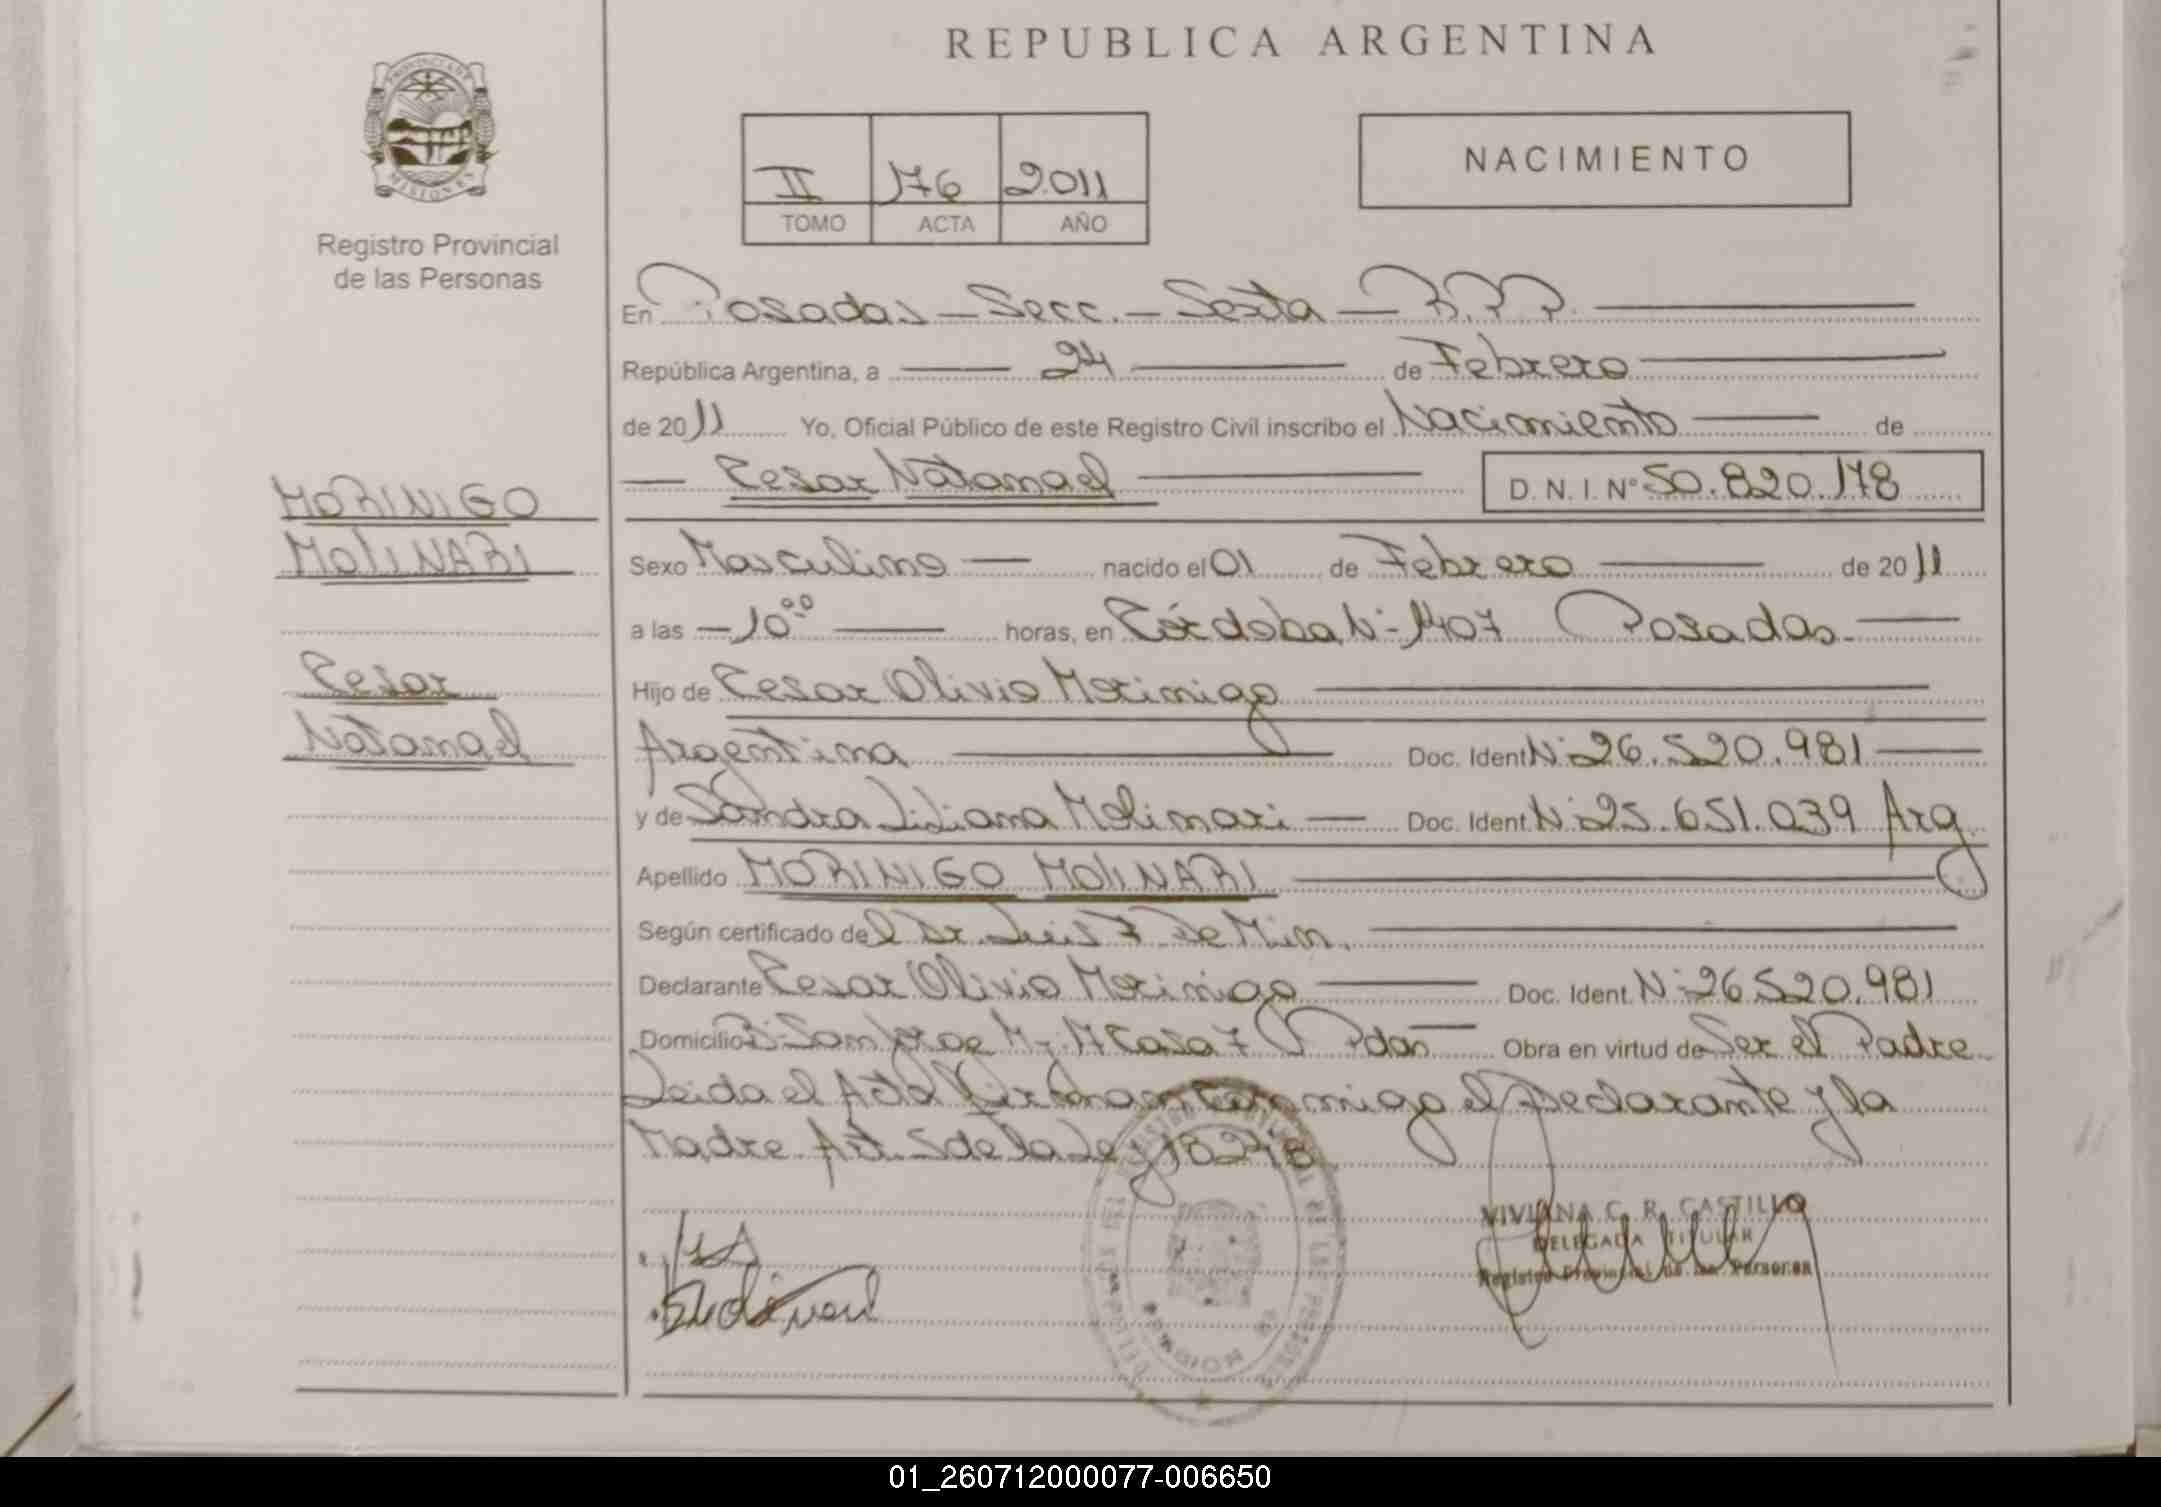 REPUBLICA ARGENTINA
PROVINCIA DE MISIONES
Registro Provincial
de las Personas
II 176 2011
TOMO ACTA AÑO
NACIMIENTO
En Posadas - Secc. - Sexta - R.P.P.
República Argentina, a 24 de Febrero
de 2011 Yo, Oficial Público de este Registro Civil inscribo el Nacimiento de
Cesar Natanael D. N. I. N° 50.820.178
MORINIGO
MOLINARI
Cesar
Natanael
Sexo Masculino nacido el 01 de Febrero de 2011
a las 10⁰⁰ horas, en Córdoba Nº 1407 Posadas
Hijo de Cesar Olivio Morinigo
Argentina Doc. Ident Nº 26.520.981
y de Sandra Liliana Molinari Doc. Ident. Nº 25.651.039 Arg
Apellido MORINIGO MOLINARI
Según certificado del Dr. Luis F De Min.
Declarante Cesar Olivio Morinigo Doc. Ident. Nº 26.520.981
Domicilio Bº San Jorge Casa 7 Pdas Obra en virtud de Ser el Padre
Leida el Acta Firman conmigo el Declarante y la
Madre Art. 5 de la Ley 18248
VIVIANA C. R. CASTILLO
DELEGADA TITULAR
Registro Provincial de las Personas
01_260712000077-006650